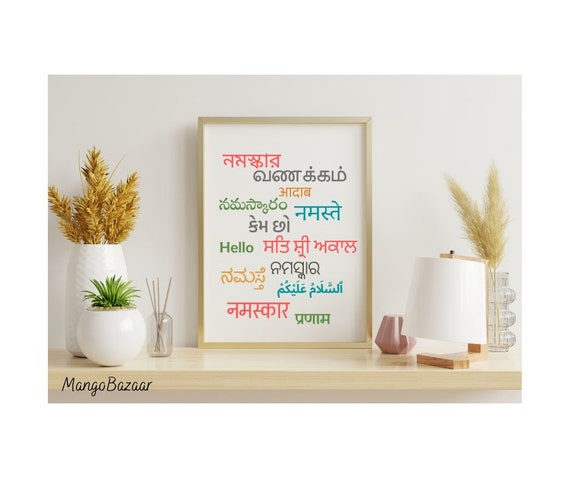 নমস্কার
வணக்கம்
आदाब
నమస్కారం
नमस्ते
કેમ છો
Hello
ਸਤਿ ਸ਼੍ਰੀ ਅਕਾਲ
ನಮಸ್ತೆ
اَلسَّلَامُ عَلَيْكُمْ
नमस्कार
प्रणाम
MangoBazaar